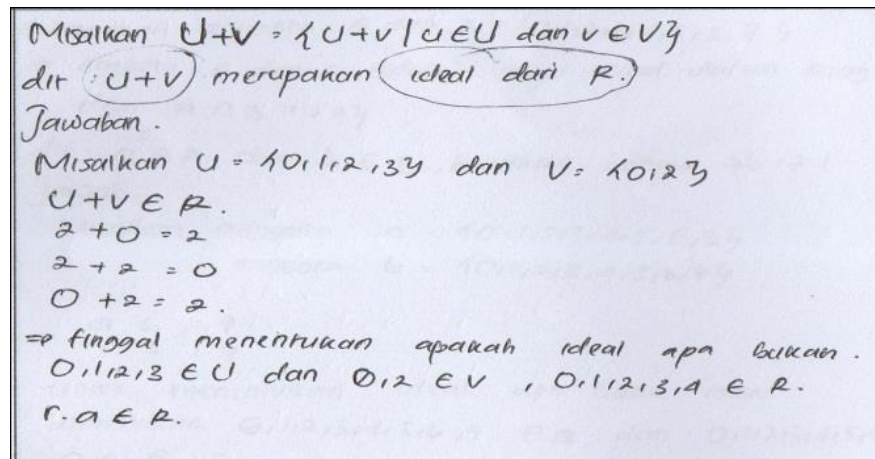 Misalkan U+V = {u+v | u ∈ U dan v ∈ V}
dit : U+V merupakan ideal dari R.
Jawaban.
Misalkan U = {0,1,2,3} dan V = {0,2}
U+V ∈ R.
2 + 0 = 2
2 + 2 = 0
0 + 2 = 2.
⇒ tinggal menentukan apakah ideal apa bukan.
0,1,2,3 ∈ U dan 0,2 ∈ V , 0,1,2,3,4 ∈ R.
r.a ∈ R.